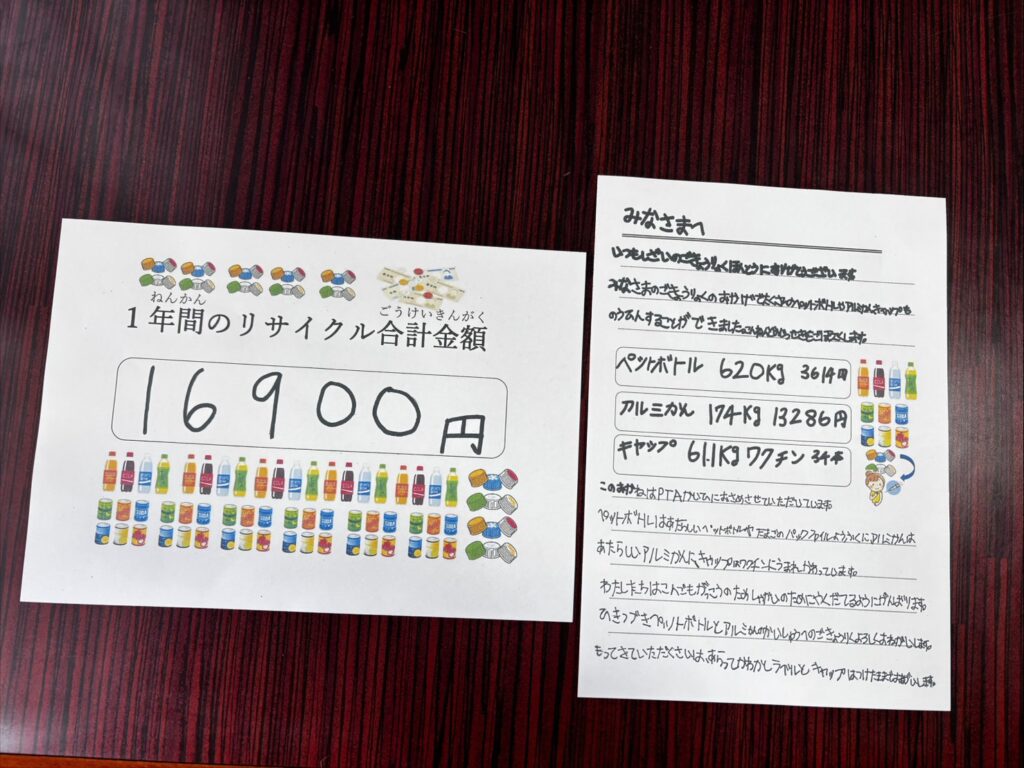 ねんかん
ごうけいきんがく
1年間のリサイクル合計金額
16900円
みなさまへ
いつもしざいのごきょうりょくほんとうにありがとうございます
みなさまのごきょうりょくのおかげでたくさんのペットボトルアルミかんキャップも
のうひんすることができました。
ペットボトル 620Kg 3614円
アルミかん 174Kg 13286円
キャップ 61.1Kg ワクチン 34本
このおかねはPTAかいひにおさめさせていただいています
ペットボトルはあたらしいペットボトルやたまごのパックファイルようふくにアルミかんは
あたらしいアルミかんに、キャップはワクチンにうまれかわっています。
わたしたちはこんごもがっこうのためしゃかいのためにやくだてるようにがんばります。
ひきつづきペットボトルとアルミかんのかいしゅうへのごきょうりょくよろしくおねがいします。
もってきていただくさいは、あらってかわかしラベルとキャップはつけたままでおねがいします。